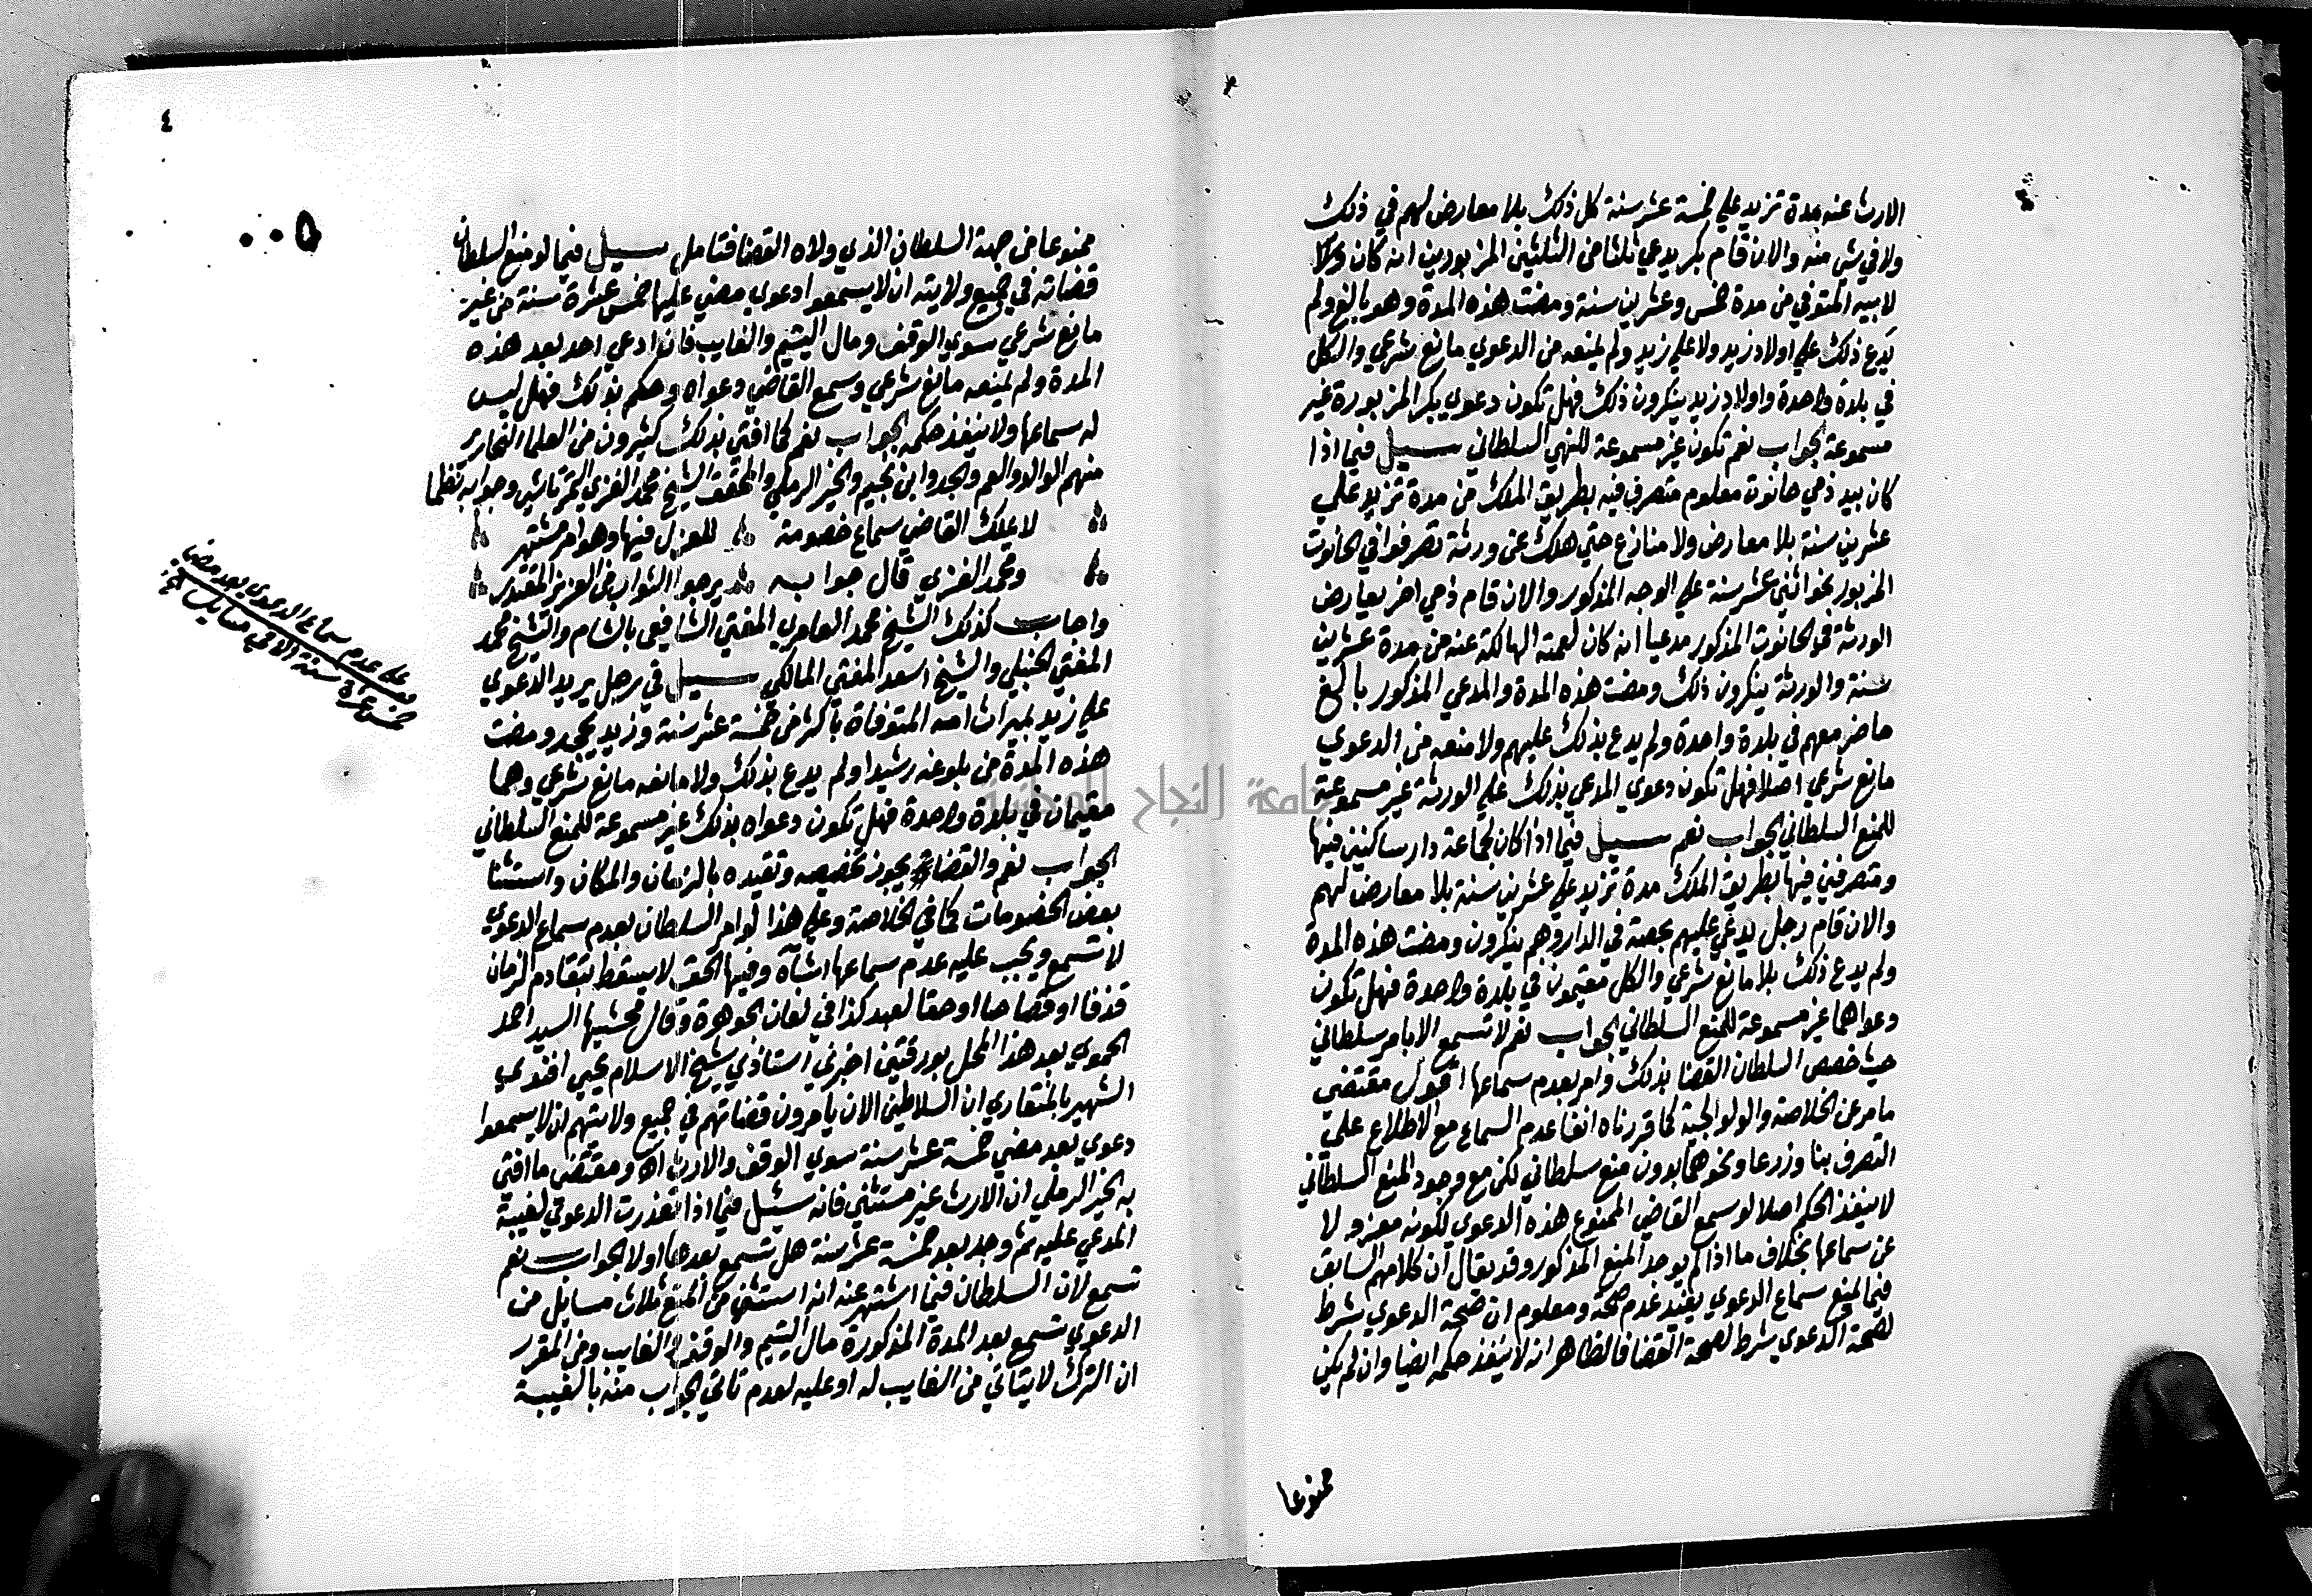 الارث عنه مدة تزيد علي خمسة عشر سنة كل ذلك بلا معارض لهم في ذلك
ولا في شي منه والان قام بكر يدعي ثلثا من الثلثين المزبورين انه كان
لابيه المتوفي من مدة خمس وعشرين سنة ومضت هذه المدة وهو بالغ ولم
يدع ذلك علي اولاد زيد ولا علي زيد ولم يمنعه من الدعوي مانع شرعي والكل
في بلدة واحدة واولاد زيد ينكرون ذلك فهل تكون دعوي بكر المزبورة غير
مسموعة الجواب نعم تكون غير مسموعة للنهي السلطاني سيل فيما اذا
كان بيد ذمي حانوت معلوم متصرف فيه بطريق الملك من مدة تزيد علي
عشرين سنة بلا معارض ولا منازع حتي هلك عن ورثة تصرفوا في الحانوت
المزبور نحو اثني عشر سنة علي الوجه المذكور والان قام ذمي اخر يعارض
الورثة في الحانوت المذكور مدعيا انه كان لعمته الهالكة عنه من مدة عشرين
سنة والورثة ينكرون ذلك ومضت هذه المدة والمدعي المذكور بالغ
حاضر معهم في بلدة واحدة ولم يدع بذلك عليهم ولا منعه من الدعوي
مانع شرعي اصلا فهل تكون دعوي المدعي بذلك علي الورثة غير مسموعة
للمنع السلطاني الجواب نعم سيل فيما اذا كان لجماعة دار ساكنين فيها
ومتصرفين فيها بطريق الملك مدة تزيد علي عشرين سنة بلا معارض لهم
والان قام رجل يدعي عليهم بحصة في الدار وهم ينكرون ومضت هذه المدة
ولم يدع ذلك بلا مانع شرعي والكل مقيمون في بلدة واحدة فهل تكون
دعواها غير مسموعة للمنع السلطاني الجواب نعم لا تسمع الا بامر سلطاني
حيث خصص السلطان القضا بذلك وامر بعدم سماعها اقول مقتضي
ما مر عن الخلاصة والولوالجية كما قررناه انفا عدم السماع مع الاطلاع علي
التصرف بنا وزرعا ونحوهما بدون منع سلطاني لكن مع وجود المنع السلطاني
لا ينفذ الحكم اصلا لو سمع القاضي الممنوع هذه الدعوي لكونه معزولا
عن سماعها بخلاف ما اذا لم يوجد المنع المذكور وقد يقال ان كلامهم السابق
في المنع سماع الدعوي يفيد عدم صحته ومعلوم ان صحة الدعوي شرط
لصحة الدعوي شرط لصحة القضا فالظاهر انه لا ينفذ حكمه ايضا وان لم يكن
ممنوعا
٤
٥٠٠
ممنوعا من جهة السلطان الذي ولاه القضا فتامل سيل فيما لو منع السلطان
قضاته في جميع ولايته ان لا يسمعوا دعوي مضي عليها خمس عشرة سنة من غير
مانع شرعي سوي الوقف ومال اليتيم والغايب فاذا ادعي احد بعد هذه
المدة ولم يمنعه مانع شرعي وسمع القاضي دعواه وحكم بذلك فهل ليس
له سماعها ولا ينفذ حكمه الجواب نعم كما افتي بذلك كثيرون من العلما النحارير
منهم الوالد والعم والجد وابن نجيم والخير الرملي والمحقق الشيخ محمد الغزي التمرتاشي وجوابه نظما
لا يملك القاضي سماع خصومة للعزل فيها وهو امر مشتهر
ومحمد الغزي قال جوابه يرجوا الثواب من العزيز المقتدر
واجاب كذلك الشيخ محمد العامري المفتي الشافعي بالشام والشيخ محمد
المفتي الحنبلي والشيخ اسعد المفتي المالكي سيل في رجل يريد الدعوي
علي زيد بميراث امه المتوفاة باكثر من خمسة عشر سنة وزيد يجحد ومضت
هذه المدة من بلوغه رشيدا ولم يدع بذلك ولا مانعه مانع شرعي وهما
مقيمان في بلدة واحدة فهل تكون دعواه بذلك غير مسموعة للمنع السلطاني
الجواب نعم والقضا يجوز تخصيصه وتقيده بالزمان والمكان واستثنا
بعض الخصومات كما في الخلاصة وعلي هذا لو امر السلطان بعدم سماع الدعوي
لا تسمع ويجب عليه عدم سماعها اشباه وفيها الحق لا يسقط بتقادم الزمان
قذفا او قصاصا او حقا لعبد كذا في لعان الجوهرة وقال محشيها السيد احمد
الحموي بعد هذا المحل بورقتين اخبرني استاذي شيخ الاسلام يحيي افندي
الشهير بالمنقاري ان السلاطين الان يامرون قضاتهم في جميع ولايتهم ان لا يسمعوا
دعوي بعد مضي خمسة عشر سنة سوي الوقف والارث اه ومقتضي ما افتي
به الخير الرملي ان الارث غير مستثني فانه سئيل فيما اذا تعذرت الدعوي لغيبة
المدعي عليه ثم وجد بعد خمسة عشر سنة هل تسمع بعدها او لا الجواب نعم
تسمع لان السلطان فيما اشتهر عنه انه استثني من المنع ثلاث مسايل من
الدعوي تسمع بعد المدة المذكورة مال اليتيم والوقف والغايب ومن المقرر
ان الترك لا يتاتي من الغايب له او عليه لعدم تاتي الجواب منه بالغيبة
علي عدم سماع الدعوي بعد مضي
خمس عشر سنة الا في مسايل
جامعة النجاح الوطنية